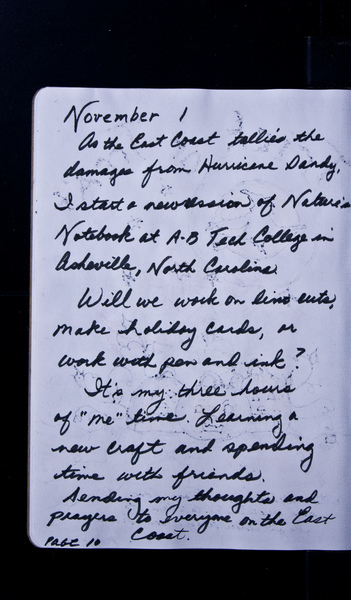 November 1
As the East Coast tallies the
damages from Hurricane Dandy,
I start a new session of Nature's
Notebook at A-B Tech College in
Asheville, North Carolina.
Will we work on lino cuts,
make holiday cards, or
work with pen and ink?
It's my three hours
of "me" time. Learning a
new craft and spending
time with friends.
Sending my thoughts and
prayers to everyone on the East
Coast.
PAGE 10